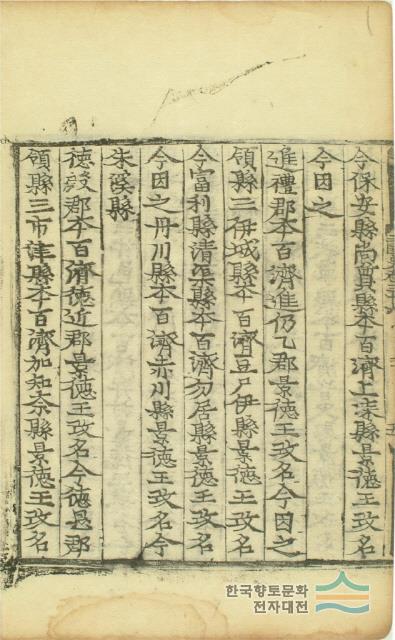 今保安縣尚質縣本百濟上漆縣景德
今因之
進禮郡本百濟進仍乙郡景德王改名今因之
領縣三伊城縣本百濟豆尸伊縣景德王改名
今富利縣清渠縣本百濟勿居縣景德王改名
今因之丹川縣本百濟赤川縣景德王改名今
朱溪縣
德殷郡本百濟德近郡景德王改名今德恩郡
領縣三市津縣本百濟加知奈縣景德王改名
한국향토문화
전자대전